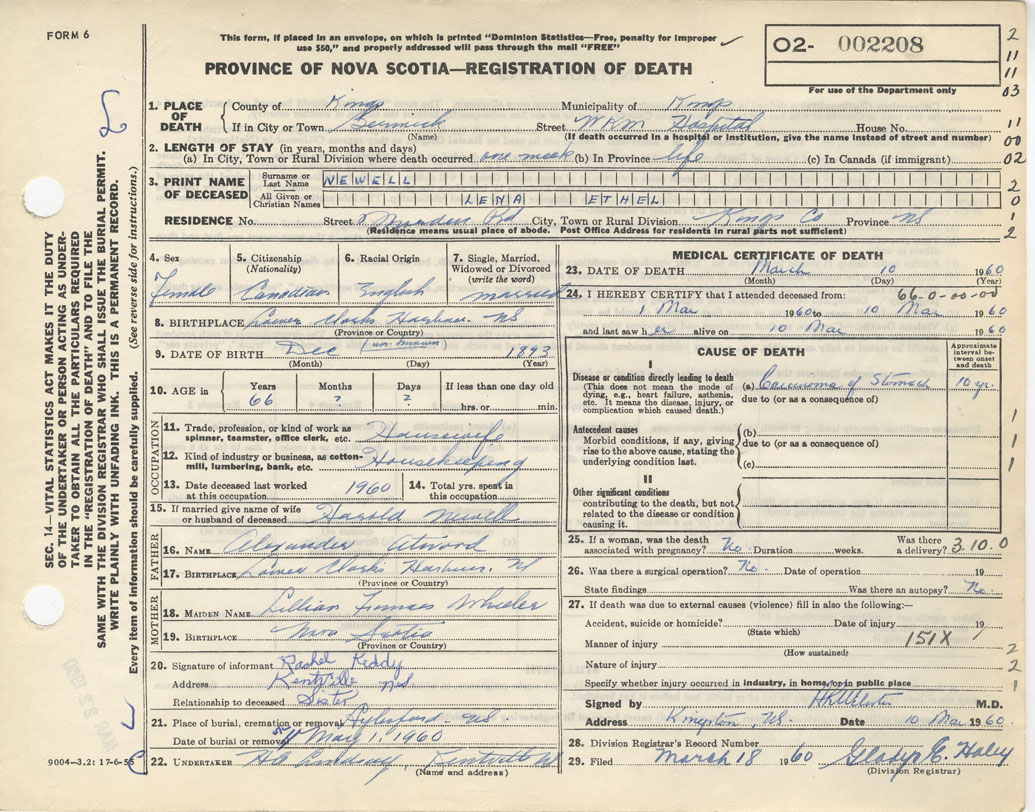 FORM 6
This form, if placed in an envelope, on which is printed "Dominion Statistics—Free, penalty for improper
use $50," and properly addressed will pass through the mail "FREE"
PROVINCE OF NOVA SCOTIA—REGISTRATION OF DEATH
02- 002208
For use of the Department only
2
11
11
03
11
00
02
2
0
1
2
SEC. 14—VITAL STATISTICS ACT MAKES IT THE DUTY
OF THE UNDERTAKER OR PERSON ACTING AS UNDER-
TAKER TO OBTAIN ALL THE PARTICULARS REQUIRED
IN THE "REGISTRATION OF DEATH" AND TO FILE THE
SAME WITH THE DIVISION REGISTRAR WHO SHALL ISSUE THE BURIAL PERMIT.
WRITE PLAINLY WITH UNFADING INK. THIS IS A PERMANENT RECORD.
Every item of information should be carefully supplied. (See reverse side for instructions.)
1. PLACE OF DEATH County of Kings Municipality of Kings
If in City or Town Berwick Street WKM Hospital House No.
(Name) (If death occurred in a hospital or institution, give the name instead of street and number)
2. LENGTH OF STAY (in years, months and days)
(a) In City, Town or Rural Division where death occurred one week (b) In Province life (c) In Canada (if immigrant)
3. PRINT NAME OF DECEASED Surname or Last Name NEWELL
All Given or Christian Names LENA ETHEL
RESIDENCE No. Street Rd City, Town or Rural Division Kings Co Province NS
(Residence means usual place of abode. Post Office Address for residents in rural parts not sufficient)
4. Sex Female
5. Citizenship (Nationality) Canadian
6. Racial Origin English
7. Single, Married, Widowed or Divorced (write the word) married
8. BIRTHPLACE Lower Clarks Harbour NS
(Province or Country)
9. DATE OF BIRTH Dec (unknown) 1893
(Month) (Day) (Year)
10. AGE in Years 66 Months ? Days ? If less than one day old hrs. or min.
OCCUPATION
11. Trade, profession, or kind of work as spinner, teamster, office clerk, etc. Housewife
12. Kind of industry or business, as cotton-mill, lumbering, bank, etc. Housekeeping
13. Date deceased last worked at this occupation 1960 14. Total yrs. spent in this occupation
15. If married give name of wife or husband of deceased Harold Newell
FATHER
16. NAME Alexander Atwood
17. BIRTHPLACE Lower Clarks Harbour NS
(Province or Country)
MOTHER
18. MAIDEN NAME Lillian Frances Wheeler
19. BIRTHPLACE Nova Scotia
(Province or Country)
20. Signature of informant Rachel Keddy
Address Kentville NS
Relationship to deceased Sister
21. Place of burial, cremation or removal Aylesford NS
Date of burial or removal May 1, 1960
22. UNDERTAKER Kentville NS
(Name and address)
9004—3.2: 17-6-55
MEDICAL CERTIFICATE OF DEATH
23. DATE OF DEATH March 10 1960
(Month) (Day) (Year)
24. I HEREBY CERTIFY that I attended deceased from: 66-0-00-00
1 Mar 1960 to 10 Mar 1960
and last saw her alive on 10 Mar 1960
CAUSE OF DEATH
Approximate interval between onset and death
I
Disease or condition directly leading to death (a) Carcinoma of Stomach 10 yr.
(This does not mean the mode of dying, e.g., heart failure, asthenia, etc. It means the disease, injury, or complication which caused death.)
due to (or as a consequence of)
Antecedent causes
Morbid conditions, if any, giving rise to the above cause, stating the underlying condition last.
(b)
due to (or as a consequence of)
(c)
II
Other significant conditions
contributing to the death, but not related to the disease or condition causing it.
1
1
1
25. If a woman, was the death associated with pregnancy? No Duration weeks. Was there a delivery? 3.10.0
26. Was there a surgical operation? No. Date of operation 19
State findings Was there an autopsy? No.
27. If death was due to external causes (violence) fill in also the following:—
Accident, suicide or homicide? Date of injury 19
(State which)
Manner of injury 151X
(How sustained)
Nature of injury
Specify whether injury occurred in industry, in home, or in public place
2
2
1
Signed by M.D.
Address Kingston, NS. Date 10 Mar 1960.
28. Division Registrar's Record Number
29. Filed March 18 1960 Gladys E. Haley
(Division Registrar)